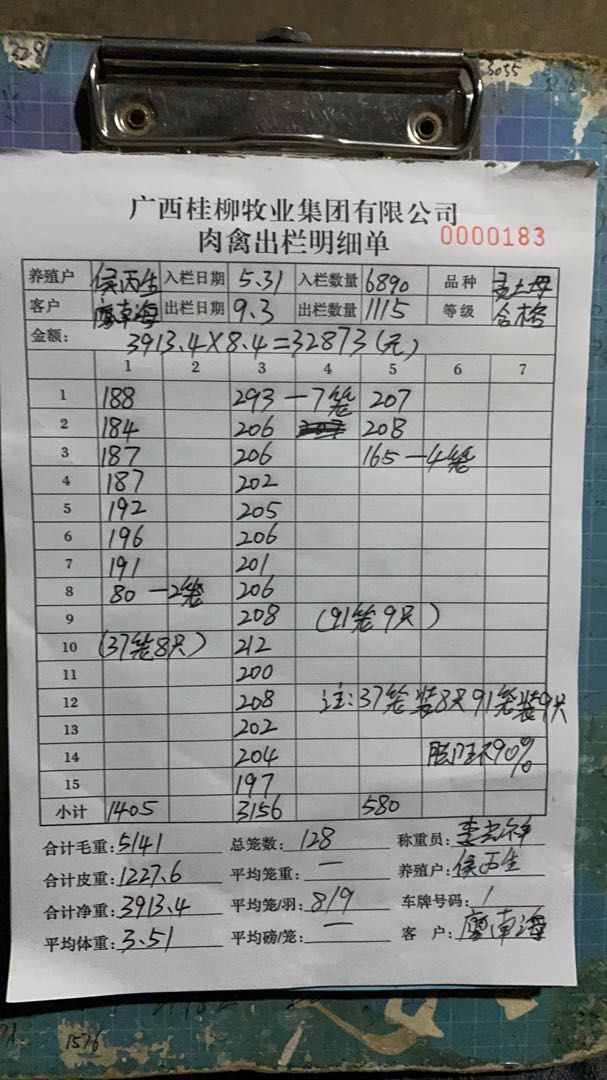 3055
广西桂柳牧业集团有限公司
肉禽出栏明细单 0000183
养殖户 侯丙生 入栏日期 5.31 入栏数量 6890 品种 土母
客户 廖南海 出栏日期 9.3 出栏数量 1115 等级 合格
金额: 3913.4×8.4=32873(元)
1 2 3 4 5 6 7
1 188 293 -7笼 207
2 184 206 208
3 187 206 165 -4笼
4 187 202
5 192 205
6 196 206
7 191 201
8 80 -2笼 206
9 208 (91笼9只)
10 (37笼8只) 212
11 200
12 208 注:37笼装8只91笼装9只
13 202
14 204 90%
15 197
小计 1405 3156 580
合计毛重: 5141 总笼数: 128 称重员:
合计皮重: 1227.6 平均笼重: — 养殖户: 侯丙生
合计净重: 3913.4 平均笼/羽: 8/9 车牌号码: /
平均体重: 3.51 平均磅/笼: — 客 户: 廖南海
1576